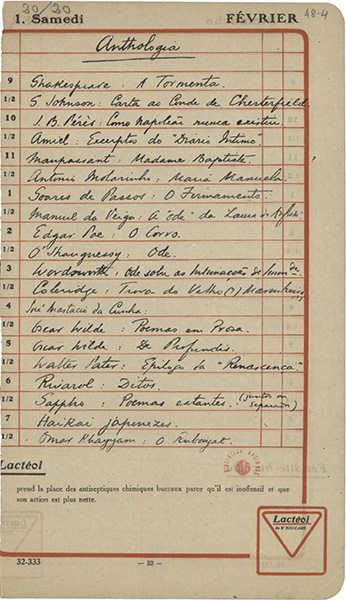 20/20
48-4
1. Samedi FÉVRIER
Anthologia
9 Shakespeare: A Tormenta.
1/2 S. Johnson: Carta ao Conde de Chesterfield
10 J. B. Pérès: Como Napoleão nunca existiu
1/2 Amiel: Excerptos do "Diario Intimo".
11 Maupassant: Madame Baptiste.
1/2 Antonio Molarinho: Maria Manuela
1 Soares de Passos: O Firmamento.
1/2 Manuel da Veiga: A "Ode" da Laura de
2 Edgar Poe: O Corvo.
1/2 O'Shaugnessy: Ode.
3 Wordsworth: Ode sobre as Intimações de
1/2 Coleridge: Trova do Velho (?) Marinheiro
4 José Anastacio da Cunha:
1/2 Oscar Wilde: Poemas em Prosa.
5 Oscar Wilde: De Profundis.
1/2 Walter Pater: Epilogo da "Renascença"
6 Rivarol: Ditos.
1/2 Sappho: Poemas extantes. (juntos ou separados)
7 Haikai japonezes.
1/2 Omar Khayyam: O Rubaiyat.
Lactéol
prend la place des antiseptiques chimiques buccaux parce qu'il est inoffensif et que
son action est plus nette.
Lactéol
du Dr BOUCARD
32-333
— 33 —